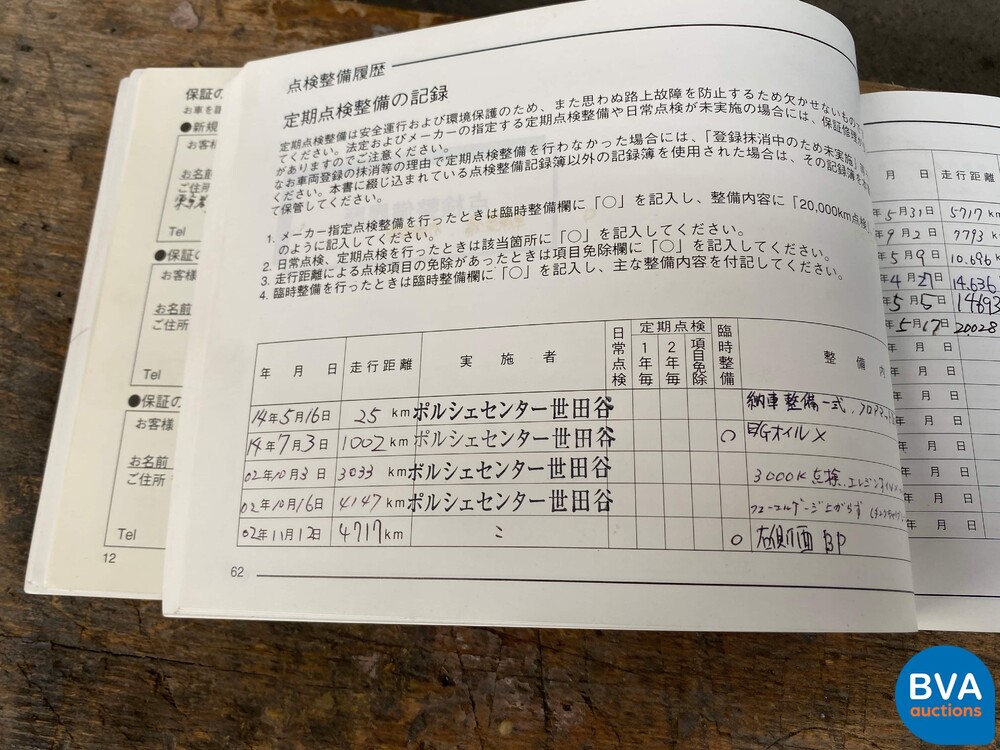 保証の
お車を
●新規
お客様
お名前
ご住所
Tel
●保証の
お客様
お名前
ご住所
Tel
●保証の
お客様
お名前
ご住所
Tel
12
点検整備履歴
定期点検整備の記録
定期点検整備は安全運行および環境保護のため、また思わぬ路上故障を防止するため欠かせないもので
てください。法定およびメーカーの指定する定期点検整備や日常点検が未実施の場合には、保証修理が
がありますのでご注意ください。
なお車両登録の抹消等の理由で定期点検整備を行わなかった場合には、「登録抹消中のため未実施」等
ください。本書に綴じ込まれている点検整備記録簿以外の記録簿を使用された場合は、その記録簿を本
て保管してください。
1. メーカー指定点検整備を行ったときは臨時整備欄に「○」を記入し、整備内容に「20,000km点検
のように記入してください。
2. 日常点検、定期点検を行ったときは該当箇所に「○」を記入してください。
3. 走行距離による点検項目の免除があったときは項目免除欄に「○」を記入してください。
4. 臨時整備を行ったときは臨時整備欄に「○」を記入し、主な整備内容を付記してください。
年 月 日 走行距離 実施者 日常点検 定期点検 1年毎 2年毎 項目免除 臨時整備 整備内
14年5月16日 25 km ポルシェセンター世田谷 納車整備一式、
14年7月3日 1002 km ポルシェセンター世田谷 ○ E/Gオイル×
02年10月3日 3033 km ポルシェセンター世田谷 3000K点検、エンジンオイル
02年10月16日 4147 km ポルシェセンター世田谷 フューエルゲージ上がらず
02年11月12日 4717 km ミ ○ 右側面 BP
62
月 日 走行距離
年5月31日 5717 km
年9月2日 7793 km
年5月9日 10.696 k
年4月27日 14.636
年5月5日 14693
年5月17日 20028
年 月 日
年 月 日
年 月 日
年 月 日
年 月 日
年 月 日
年 月 日
年 月 日
BVA
auctions